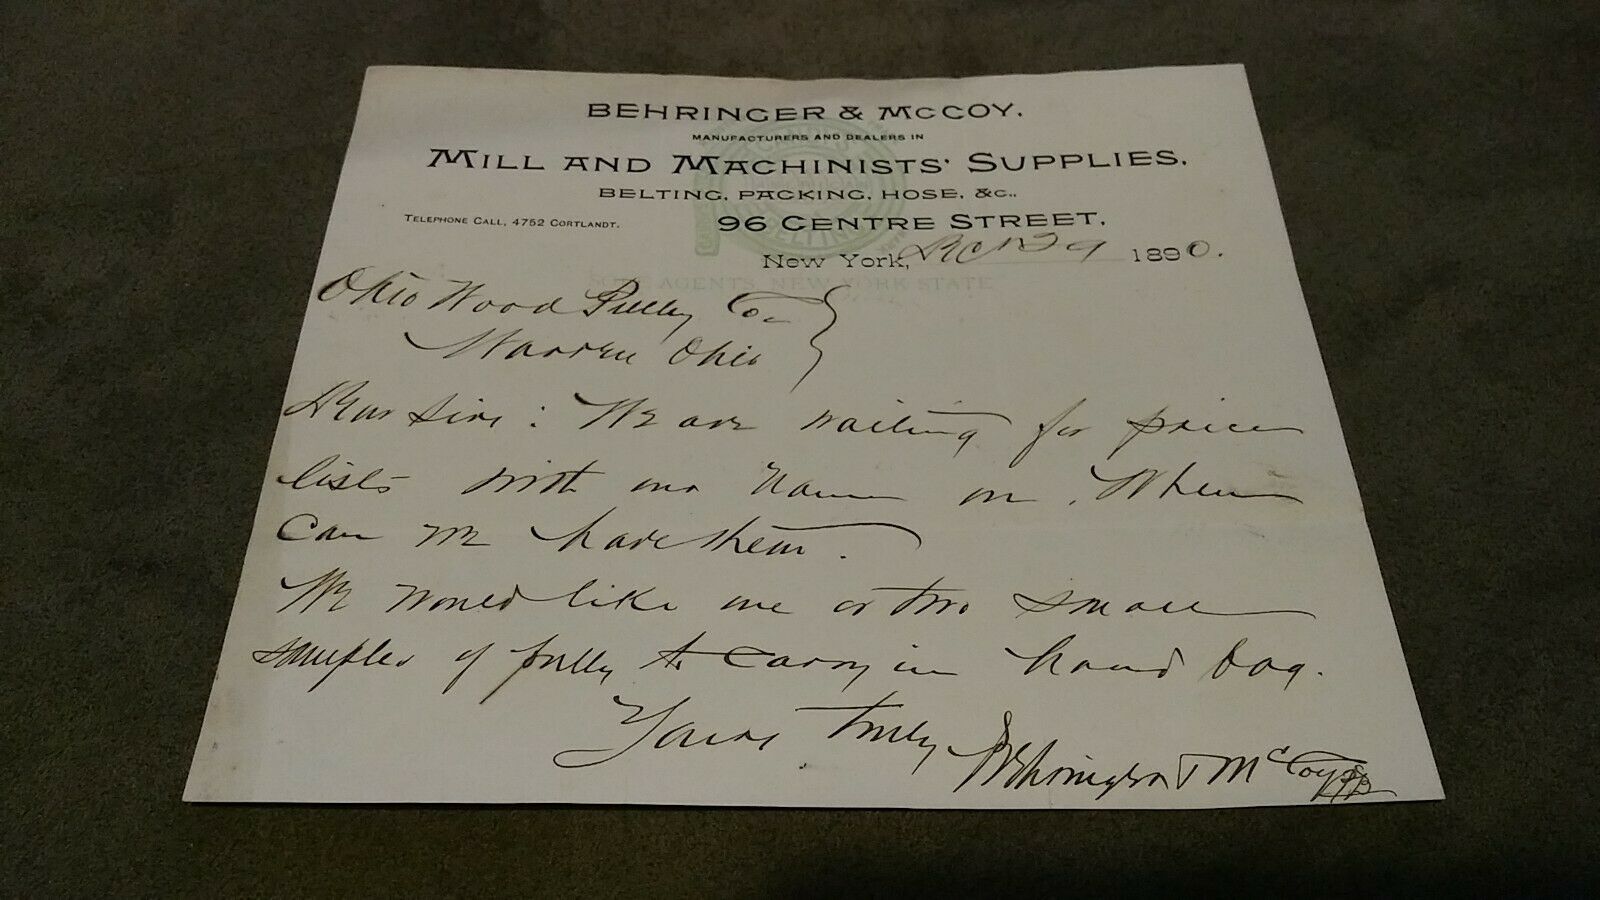 BEHRINGER & McCOY.
MANUFACTURERS AND DEALERS IN
MILL AND MACHINISTS' SUPPLIES.
BELTING, PACKING, HOSE, &C.,
TELEPHONE CALL, 4752 CORTLANDT.
96 CENTRE STREET.
New York, 1890.
AGENTS, NEW YORK STATE
Ohio Wood Pulley Co
Warren Ohio
Dear Sirs: We are waiting for price
lists with our name on. When
can we have them.
We would like one or two small
samples of pulley to carry in hand bag.
Yours truly
Behringer & McCoy